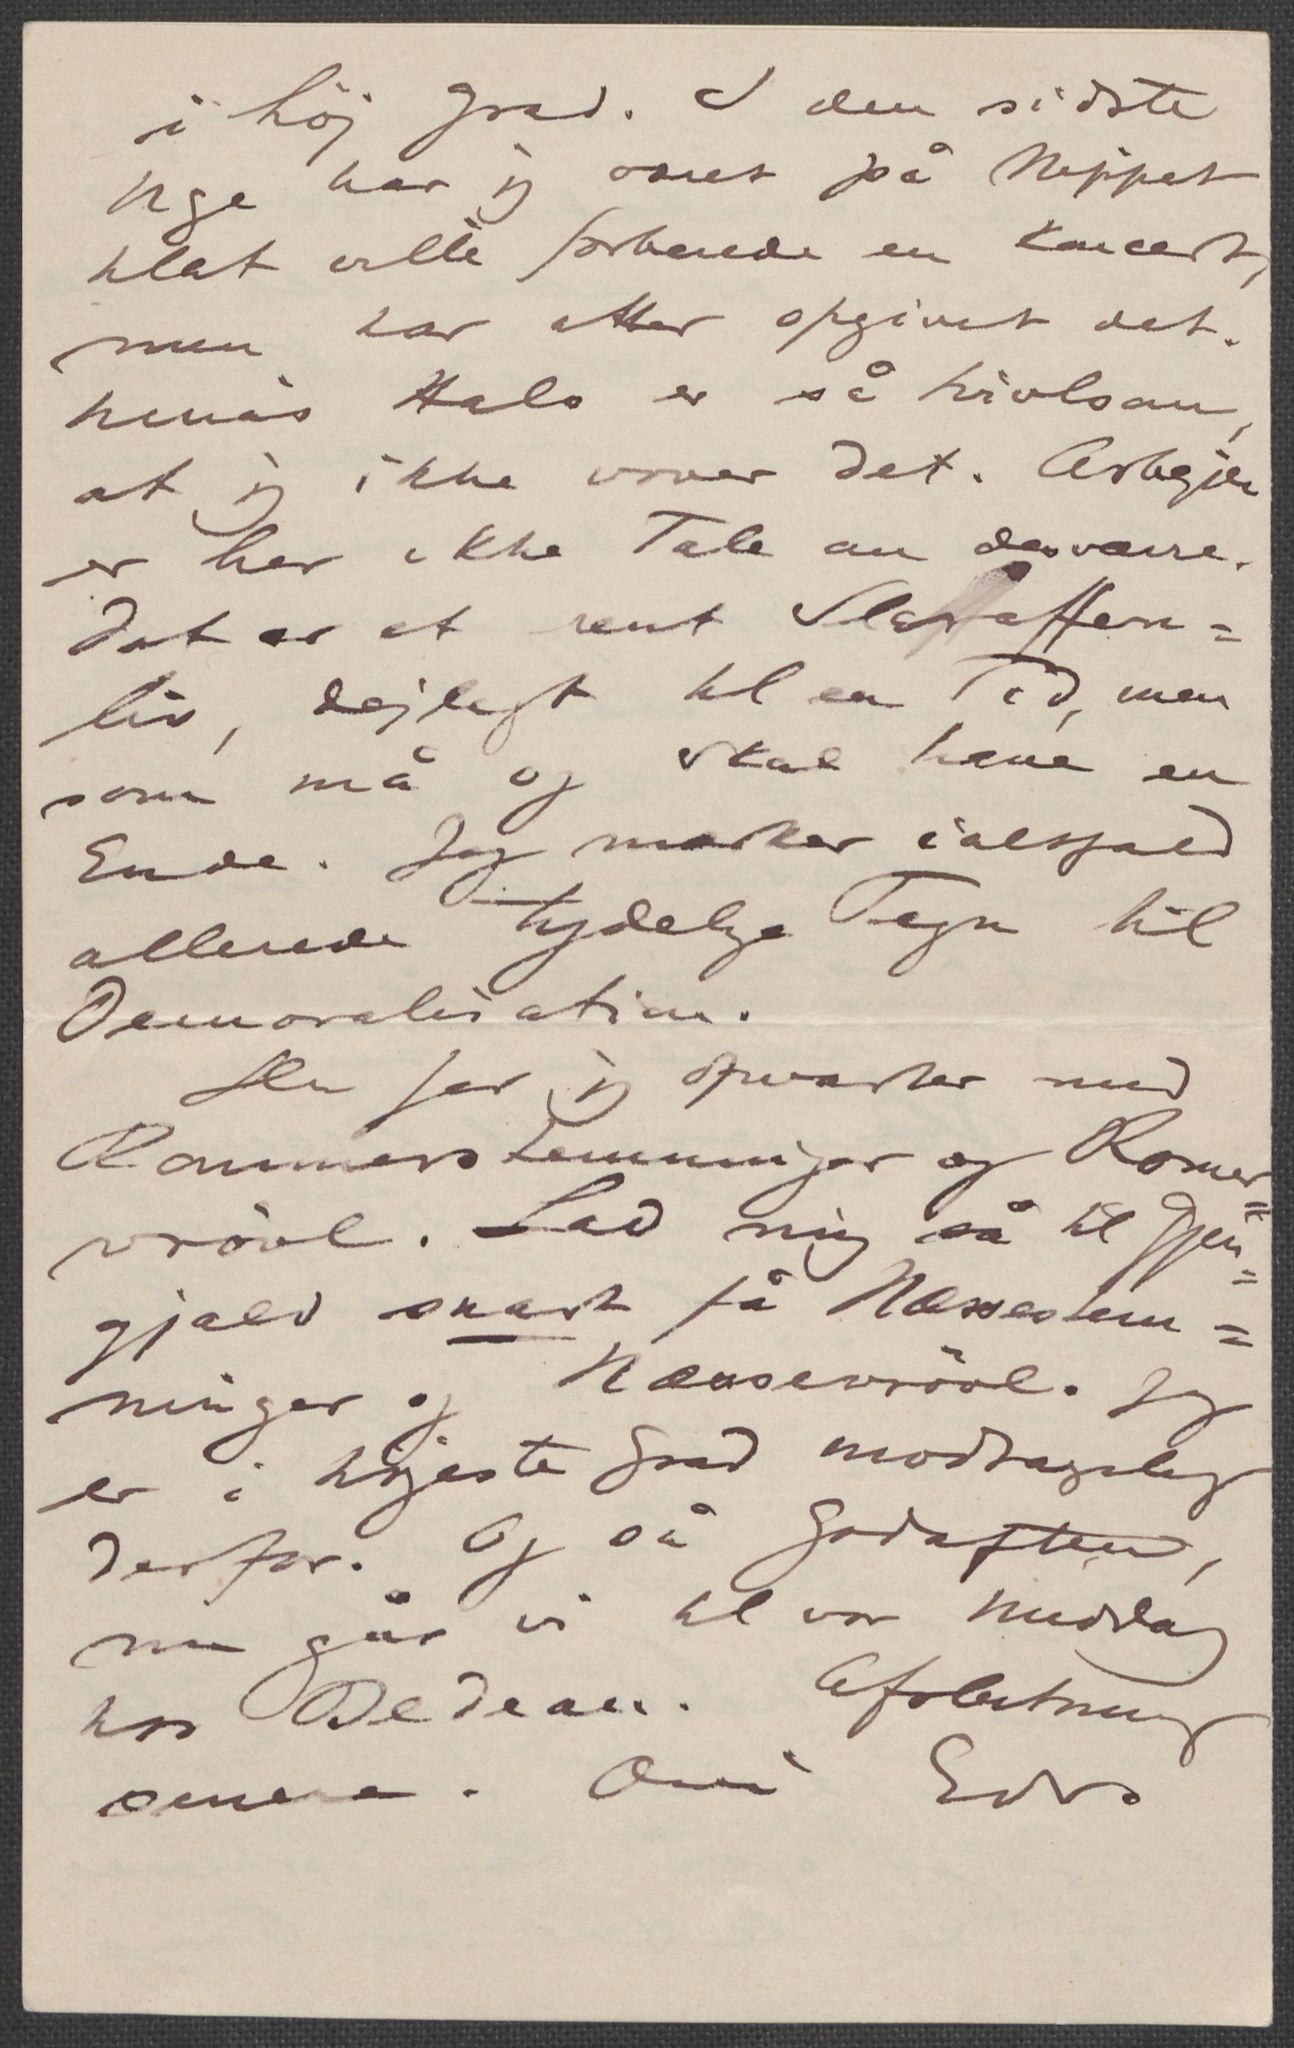 i höj Grad. I den sidste
Uge har jeg været på Nippet
til at ville forberede en Koncert,
men har atter opgivet det.
Ninas Hals er så tvivlsom,
at jeg ikke vover det. Arbejde
er her ikke Tale om desværre.
Det er et rent Slaraffen=
liv, dejligt til en Tid, men
som må og skal have en
Ende. Jeg mærker ialfald
allerede tydelige Tegn til
Demoralisation.
Her har jeg opvartet med
Romerstemninger og Romer=
vrövl. Lad mig så til Gjen=
gjæld snart få Næssestem=
ninger og Næssevrövl. Jeg
er i höjeste Grad modtagelig
derfor. Og så Godaften,
nu går vi til vor Middag
hos Bedeau. Afslutning
senere. Din Edvs